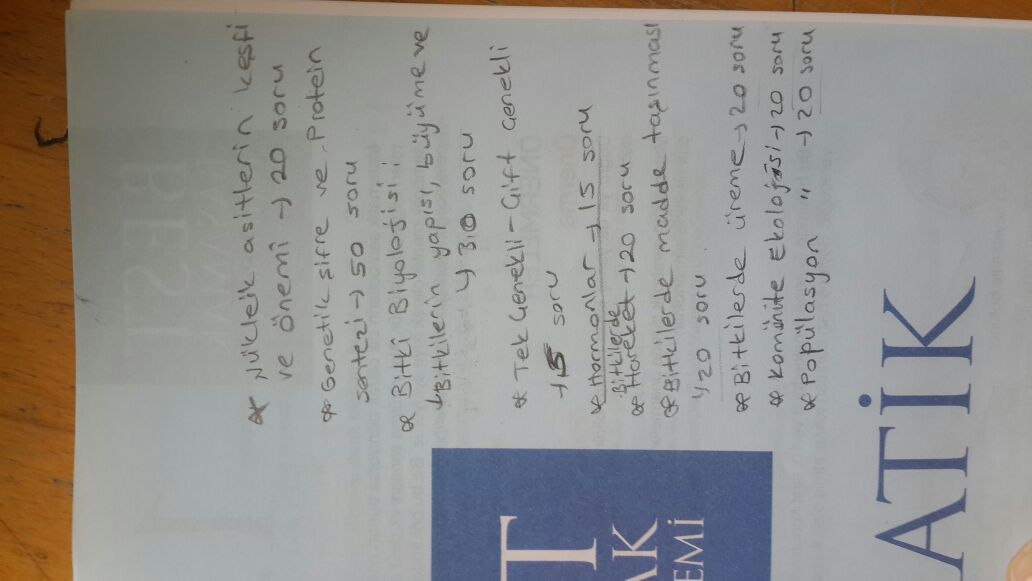 * Nükleik asitlerin keşfi
ve önemi → 20 soru
* Genetik şifre ve Protein
sentezi → 50 soru
* Bitki Biyolojisi
↳ Bitkilerin yapısı, büyüme ve
↳ 30 soru
* Tek Çenekli - Çift Çenekli
→ 15 soru
* Hormonlar → 15 soru
Bitkilerde
* Hareket → 20 soru
* Bitkilerde madde taşınması
↳ 20 soru
* Bitkilerde üreme → 20 soru
* Komünite Ekolojisi → 20 soru
* Popülasyon " → 20 soru
T
AK
EMİ
ATİK